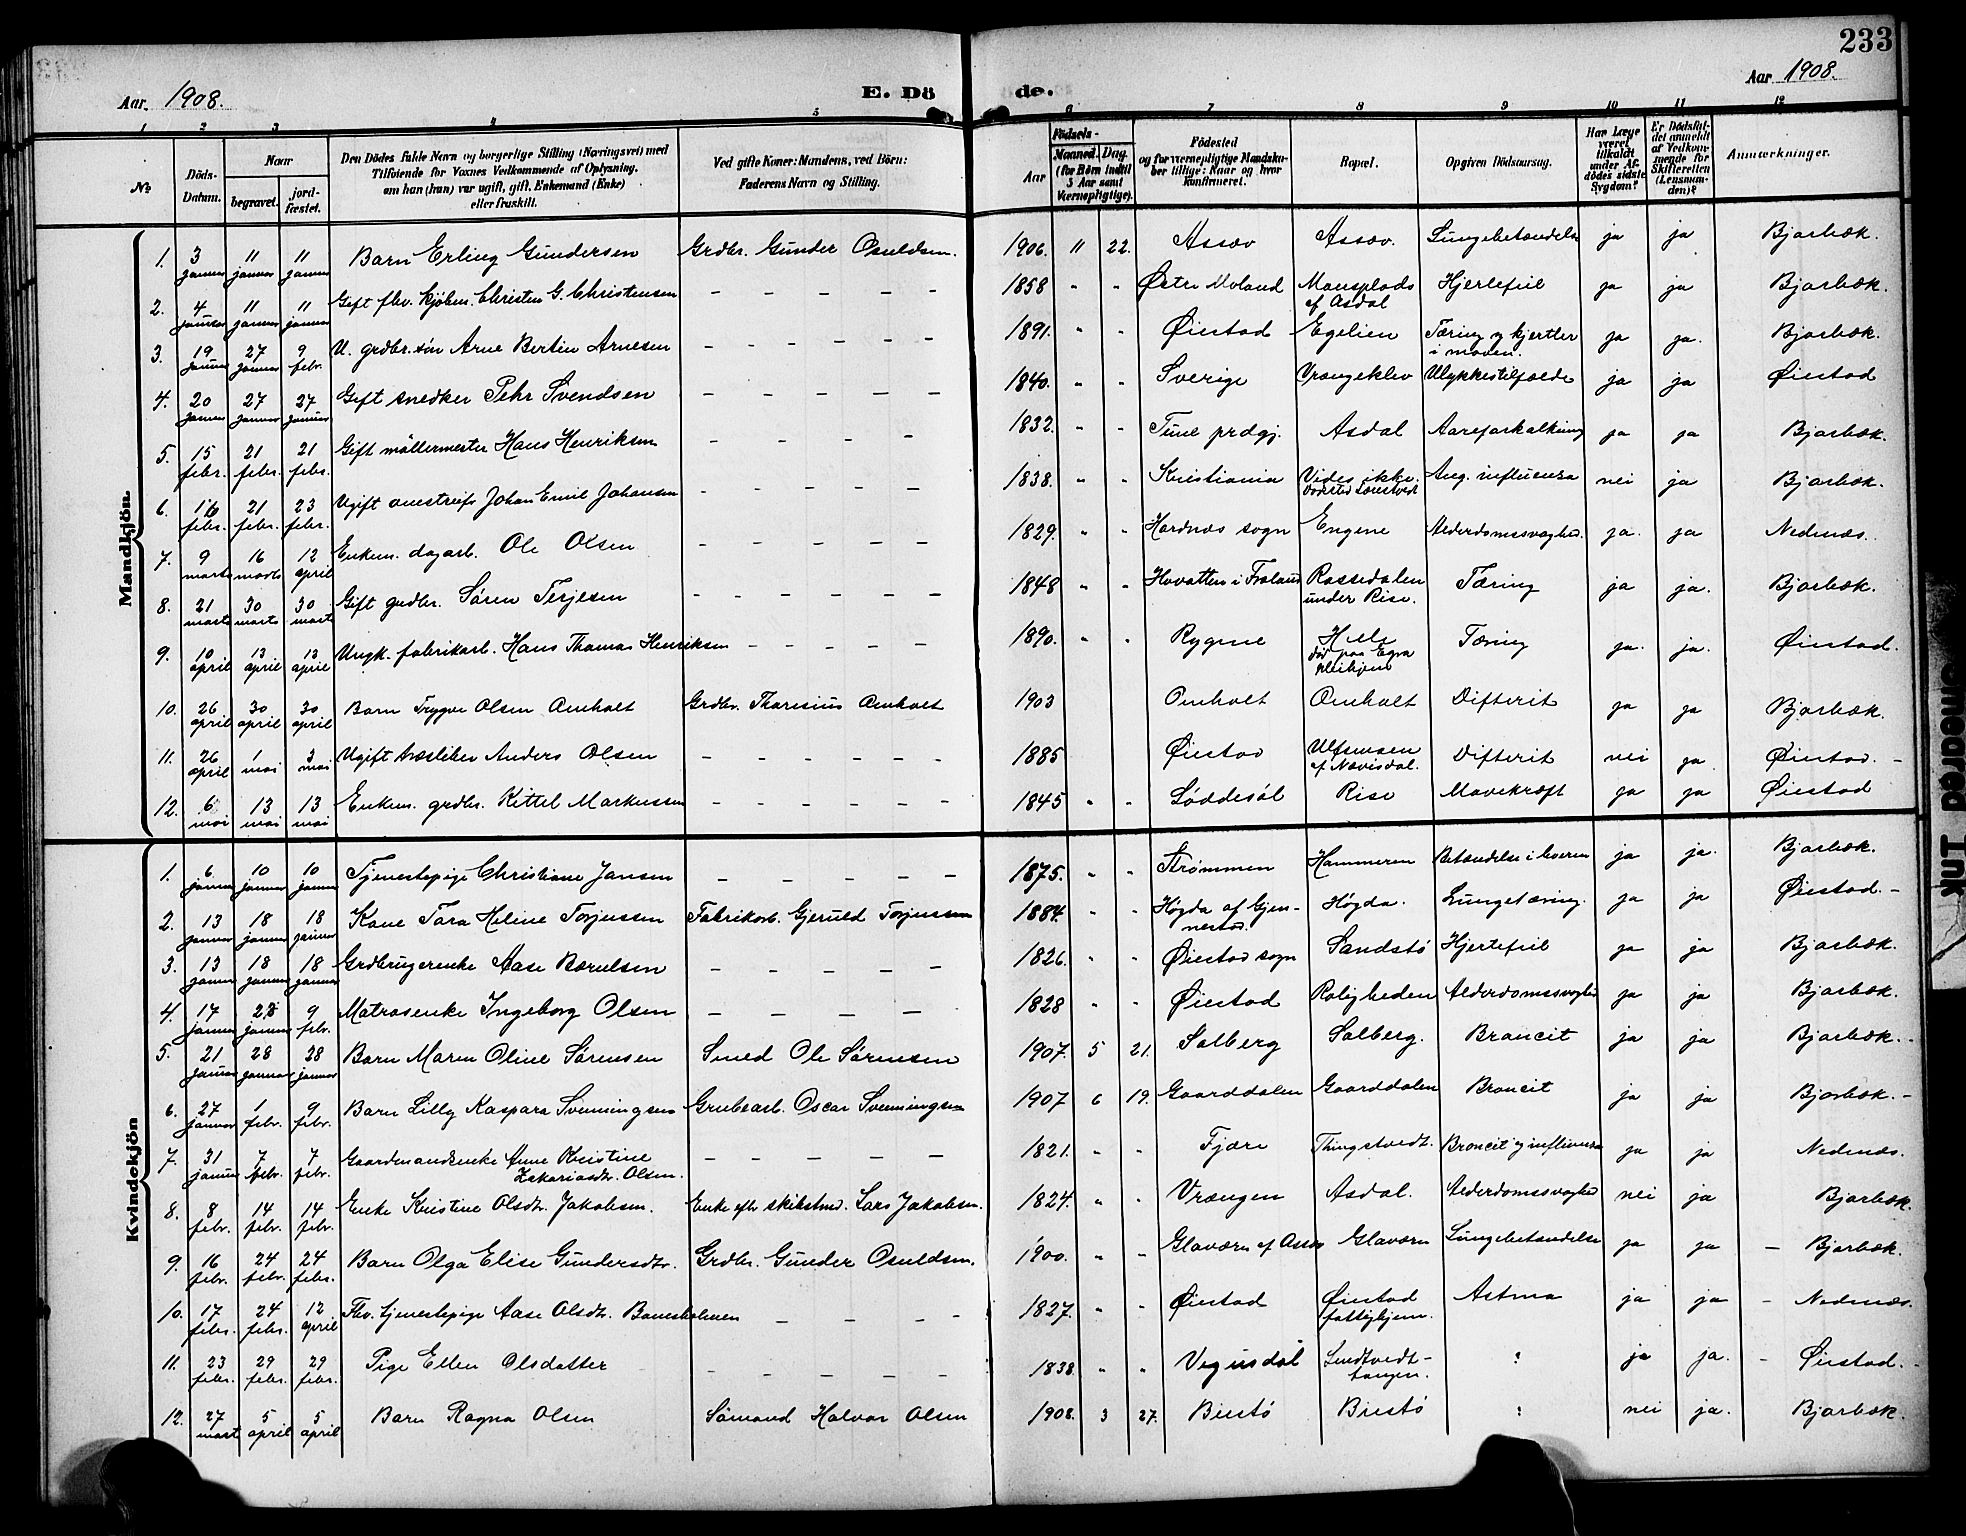 233
Aar 1908.
E. Dö de.
Aar 1908.
1 2 3 4 5 6 7 8 9 10 11 12
№
Döds-Datum.
Naar
begravet.
jord-fæstet.
Den Dödes fulde Navn og borgerlige Stilling (Næringsvei) med
Tilföiende for Voxnes Vedkommende af Oplysning,
om han (hun) var ugift, gift, Enkemand (Enke)
eller fraskilt.
Ved gifte Koner: Mandens, ved Börn:
Faderens Navn og Stilling.
Födsels-
Aar
Maaned. Dag.
(for Börn indtil
5 Aar samt
Værnepligtige).
Födested
og for værnepligtige Mandska-
ber tillige: Naar og hvor
konfirmeret.
Bopæl.
Opgiven Dödsaarsag.
Har Læge
været
tilkaldt
under Af-
dödes sidste
Sygdom?
Er Dödsfal-
det anmeldt
af Vedkom-
mende for
Skifteretten
(Lensman-
den)?
Anmærkninger.
Mandkjön.
1. 3 januar 11 januar 11 januar Barn Erling Gundersen Grdbr. Gunder Osuldsen. 1906. 11 22. Assæv Assæv. Lungebetændelse ja ja Bjorbæk.
2. 4 januar 11 januar 11 januar Gift fhv. kjöbm. Christen G. Christensen 1858 " " Østre Moland Mansplads af Asdal Hjertefeil ja ja Bjorbæk.
3. 19 januar 27 januar 9 febr. U. grdbr. sön Arne Bertin Arnesen 1891. " " Øiestad Egelien Tæring og kjertler i maven. ja ja. Bjorbæk.
4. 20 januar 27 januar 27 januar Gift snedker Pehr Svendsen 1840. " " Sverige Vrængeklev Ulykkestilfælde ja ja Øiestad
5. 15 febr. 21 febr. 21 febr. Gift möllermester Hans Henriksen 1832. " " Tune prdgj. Asdal Aareforkalkning ja ja Bjorbæk.
6. 16 febr. 21 febr. 23 febr. Ugift omstreifr Johan Emil Johansen 1838. " " Kristiania Vides ikke. Ang. influensa nei ja Bjorbæk.
7. 9 marts 16 marts 12 april Enkem. dagarb. Ole Olsen 1829. " " Hordnæs sogn Engene Alderdomssvaghed. ja. ja Nedenæs.
8. 21 marts 30 marts 30 marts Gift grdbr. Sören Terjesen 1848 " " Hovatten i Froland Rossedalen under Rise. Tæring ja ja. Bjorbæk.
9. 10 april 13 april 13 april Ungk. fabrikarb. Hans Thomas Henriksen 1890. " " Rygene Hele död paa Egra Tæring ja. ja. Øiestad.
10. 26 april 30 april 30 april Barn Trygve Olsen Omholt Grdbr. Tharesius Omholt 1903 Omholt Omholt Difterit ja ja Bjorbæk.
11. 26 april 1 mai 3 mai Ugift træsliber Anders Olsen 1885 Øiestad af Nævisdal. Difterit nei ja Øiestad.
12. 6 mai 13 mai 13 mai Enkem. grdbr. Kittel Markussen 1845 " " Løddesöl Rise Mavekræft ja ja Øiestad
Kvindekjön
1. 6 januar 10 januar 10 januar Tjenestepige Christiane Jansen 1875. " " Strømmen Hammeren Betændelse i leveren ja ja. Bjorbæk.
2. 13 januar 18 januar 18 januar Kone Tara Helene Torjussen Fabrikarb. Gjeruld Torjussen 1884. " " Høgda af Gjennestad. Høgda. Lungetæring. ja ja Øiestad.
3. 13 januar 18 januar 18 januar Grdbrugerenke Aase Bærulsen 1826. " " Øiestad sogn Sandstö Hjertefeil ja ja Bjorbæk.
4. 17 januar 28 januar 9 febr. Matrosenke Ingeborg Olsen 1828 " " Øiestad Roligheden Alderdomssvaghed ja ja Bjorbæk.
5. 21 januar 28 januar 28 januar Barn Maren Oline Sörensen Smed Ole Sörensen 1907. 5 21. Solberg Solberg. Broncit ja ja Bjorbæk.
6. 27 januar 1 febr. 9 febr. Barn Lilly Kaspara Svenningsen Grubearb. Oscar Svenningsen 1907 6 19. Gaarddalen Gaarddalen Broncit ja ja Bjorbæk.
7. 31 januar 7 febr. 7 febr. Gaardmandsenke Anne Kristine Zakariasdtr. Olsen. 1821. " " Fjære Thingstvedt. Broncit og influensa ja ja Nedenæs.
8. 8 febr. 14 febr. 14 febr. Enke Kristine Olsdtr. Jakobsen. Enke efter skibstmd. Lars Jakobsen. 1824. " " Vrængen Asdal. Alderdomssvaghed nei ja Bjorbæk.
9. 16 febr. 24 febr. 24 febr. Barn Olga Elise Gundersdtr. Grdbr. Gunder Osuldsen. 1900. " " Glaværn af Assæv Glaværn Lungebetændelse ja ja Bjorbæk.
10. 17 febr. 24 febr. 12 april Fhv. tjenestepige Aase Olsdtr. Bomsholmen 1827. " " Øiestad Øiestad fattighjem. Astma ja ja Nedenæs.
11. 23 febr. 29 febr. 29 febr. Pige Ellen Olsdatter 1838. " " Vegusdal Lindtvedt-tangen. ? ja ja. Øiestad.
12. 27 mart 5 april 5 april Barn Ragna Olsen Sömand Halvor Olsen 1908. 3 27. Biestö Biestö ? nei ja. Bjorbæk.
Ink